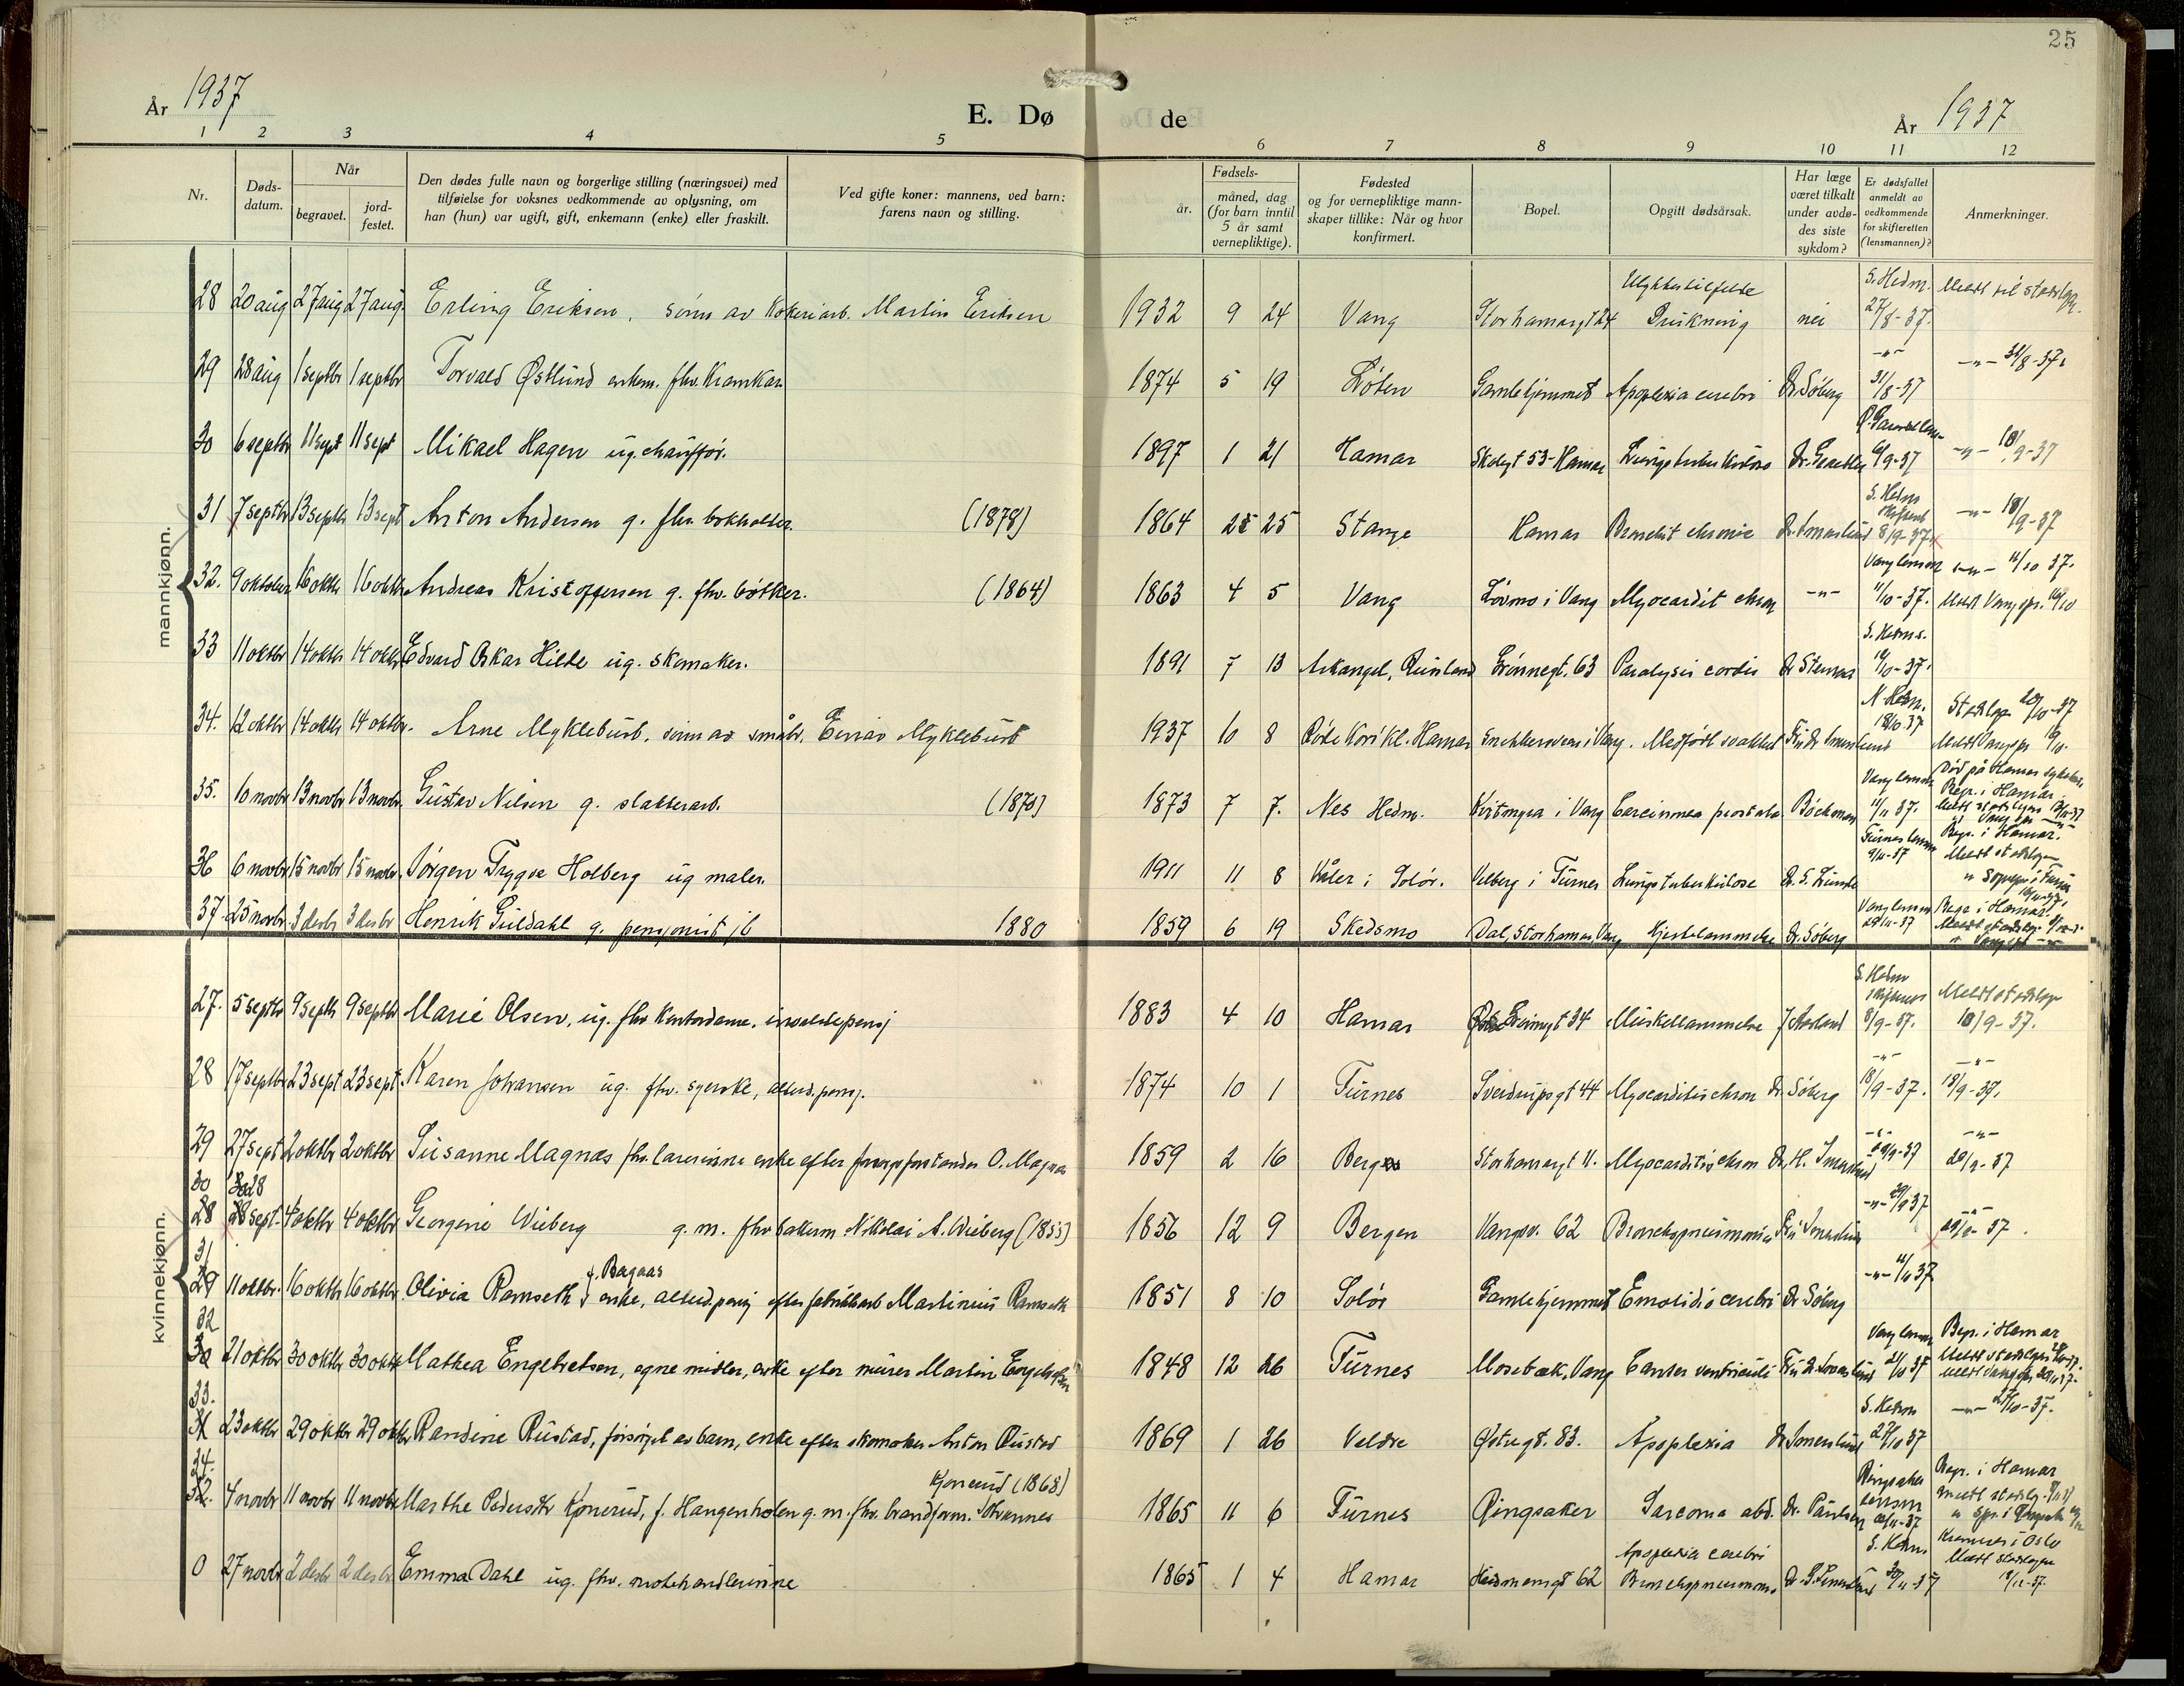 25
År 1937
E. Dø de
År 1937
1 2 3 4 5 6 7 8 9 10 11 12
Nr.
Døds-
datum.
Når
begravet.
jord-
festet.
Den dødes fulle navn og borgerlige stilling (næringsvei) med
tilføielse for voksnes vedkommende av oplysning, om
han (hun) var ugift, gift, enkemann (enke) eller fraskilt.
Ved gifte koner: mannens, ved barn:
farens navn og stilling.
Fødsels-
år.
måned, dag
(for barn inntil
5 år samt
vernepliktige).
Fødested
og for vernepliktige mann-
skaper tillike: Når og hvor
konfirmert.
Bopel.
Opgitt dødsårsak.
Har læge
været tilkalt
under avdø-
des siste
sykdom?
Er dødsfallet
anmeldt av
vedkommende
for skifteretten
(lensmannen)?
Anmerkninger.
mannkjønn.
28 20 aug 27 aug 27 aug. Erling Eriksen, sønn av Kokeriarb. Martin Eriksen 1932 9 24 Vang Storhamargt 24 Ulykkestilfelle Drukning nei S. Hedm. 27/8-37. Meldt til stadslge.
29 28 aug 1 septbr 1 septbr Torvald Østlund enkem. fhv. Kramkar 1874 5 19 Løten Gamlehjemmet Apoplexia cerebri Dr. Søberg -"- 31/8-37 -"- 31/8-37.
30 6 septbr 11 sept 11 sept Mikael Hagen ug. chauffør. 1897 1 21 Hamar Skolegt 53-Hamar Lungetuberkulose 9/9-37 -"- 10/9-37
31 7 septbr 13 septbr 13 sept Anton Andersen g. fhv. bokholder. (1878) 1864 25 25 Stange Hamar Bronchit chronic Dr. Smerlund S. Hedm 8/9-37. -"- 10/9-37
32. 9 oktober 16 oktbr 16 oktbr Andreas Kristoffersen g. fhv. bøtker. (1864) 1863 4 5 Vang Løvmo i Vang Myocardit chron -"- Vang lensm 11/10-37. -"- 11/10 37. Meldt Vang spr. 14/10
33 11 oktbr 14 oktbr 14 oktbr Edvard Oskar Hilde ug. skomaker. 1891 7 13 Arkangel, Russland Grønnegt. 63 Paralysis cordis Dr Stenras S. Hedm. 12/10-37.
34. 12 oktbr 14 oktbr 14 oktbr. Arne Myklebust, sønn av småbr. Einar Myklebust 1937 10 8 Røde Kors kl. Hamar Snekkersveen i Vang. Medfødt svakhet N Hedm. 18/10 37 Stadslge 20/10-37 Meldt Vang spr
35. 10 novbr 13 novbr 13 novbr. Gustav Nilsen g. slakterarb. (1870) 1873 7 7. Nes Hedm. Kvitmyra i Vang Carcinoma prostata Bøckman Vang lensm 11/11 37. Død på Hamar sykehus. Begr. i Hamar.
36 6 novbr 15 novbr 15 novbr. Jørgen Trygve Holberg ug maler. 1911 11 8 Våler i Solør. Velberg i Furnes Lungetuberkulose Dr. S. Lunde Furnes lensm 9/11-37 Begr. i Hamar. Meldt stadslgen
37. 25 novbr. 3 desbr 3 desbr Henrik Guldahl g. pensjonist jb 1880 1859 6 19 Skedsmo Dal, Storhamar, Vang Hjertelammelse Dr. Søberg Vang lensm 29/11-37 Begr i Hamar.
kvinnekjønn.
27. 5 septbr 9 septbr 9 septbr Marie Olsen, ug. fhv. kontordame. invalidepensj 1883 4 10 Hamar Grønnegt 34 Muskellammelse S. Hedm 8/9-37. Meldt stadslge 10/9-37.
28 17 septbr 23 sept 23 sept. Karen Johansen ug. fhv. syerske, alderd.pensj. 1874 10 1 Furnes Sverdrupsgt 44 Myocarditis chron Dr. Søberg -"- 18/9-37. -"- 18/9-37.
29 27 sept 2 oktbr 2 oktbr Susanne Magnæs fhv. lærerinne enke efter O. Magnæs 1859 2 16 Bergen Storhamargt 11. Myocarditis chron -"- 29/9-37 -"-
30 28 28 sept. 4 oktbr 4 oktbr Georgine Wieberg g. m. fhv bakerm. Nikolai A. Wieberg (1855) 1856 12 9 Bergen Vangsv. 62 Bronchopneumonia -"- -"-
31 29 11 oktbr. 16 oktbr 16 oktbr. Olivia Ramseth f. Bagaas enke, alderd.pensj efter fabrikkarb Martinius Ramseth 1851 8 10 Solør Gamlehjemmet Dr Søberg -"-
32 30 21 oktbr 30 oktbr 30 oktbr Mathea Engebretsen, egne midler, enke efter murer Martin Engebretsen 1848 12 26 Furnes Mosebæk, Vang Cancer ventriculi Vang lensm Begr. i Hamar
33. 31 23 oktbr 29 oktbr 29 oktbr Randine Rustad, forsørget av barn, enke efter skomaker Anton Rustad 1869 1 26 Veldre Østregt. 83. Apoplexia Dr Smerlund S. Hedm 27/10 37 -"- 27/10-37.
34. 32. 4 novbr 11 novbr 11 novbr Marthe Pedersdtr Kjonerud, f. Hangenholen g. m. fhv. brandform. Johannes Kjonerud (1868) 1865 11 6 Furnes Ringsaker Sarcoma abd. Dr. Paulsen Ringsaker lensm Begr. i Hamar
0 27 novbr 2 desbr 2 desbr Emma Dahl ug. fhv. motehandlerinne 1865 1 4 Hamar Heidmannsgt 62 Apoplexia cerebri Bronchopneumoni. S. Hedm 30/11-37 Kremeres i Oslo Meldt stadslgen